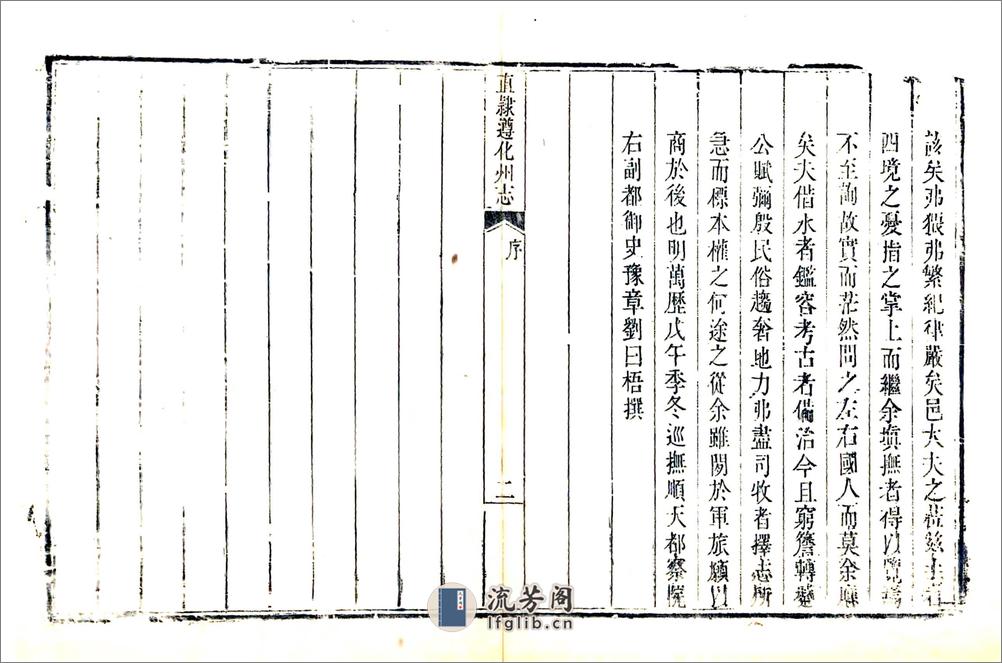 該矣弗猥弗繁紀律嚴矣邑大夫之畫兹土者
四境之憂指之掌上而繼余塡撫者得以覽焉
不至詢故實而茫然問之左右國人而莫余
矣夫借水者鑑容考古者備治今且窮簷轉
公賦彌殷民俗趨奢地力弗盡司牧者擇志所
急而標本權之何途之從余雖閑於軍旅願以
商於後也明萬歷戊午季冬巡撫順天都察院
右副都御史豫章劉曰梧撰
直隸遵化州志
序
二
流芳阁
lfglib.cn